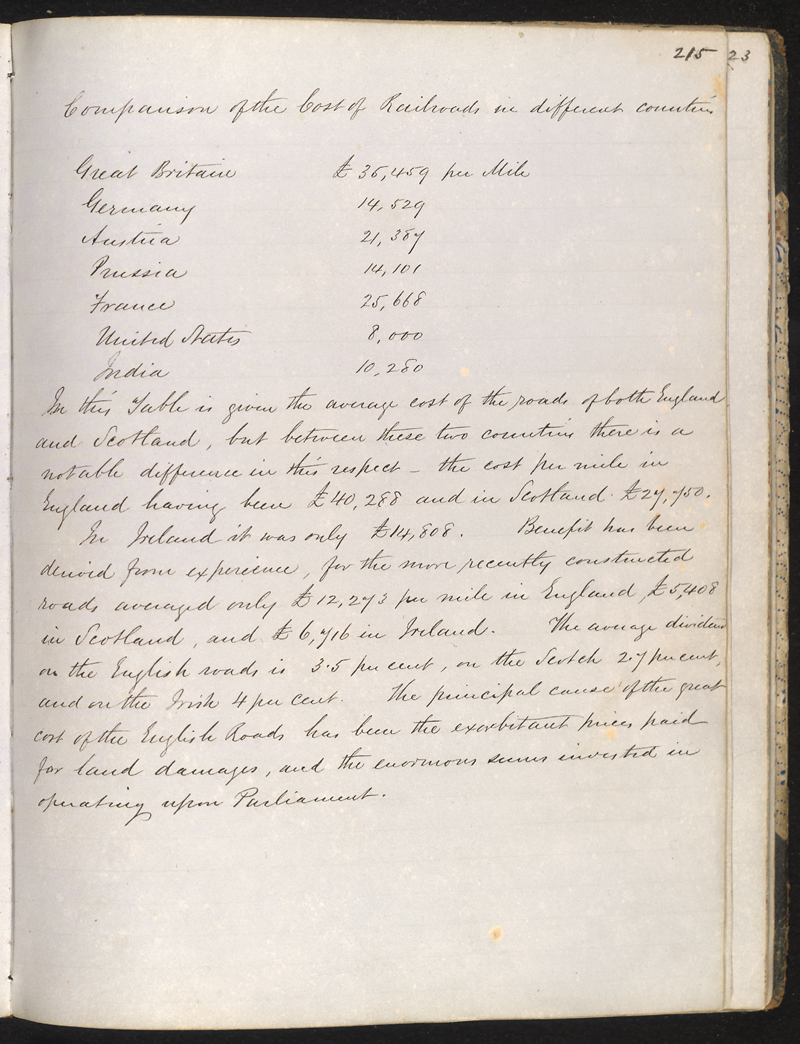 215 23
Comparison of the Cost of Railroads in different countries
Great Britain £ 35,459 per Mile
Germany 14,529
Austria 21,387
Prussia 14,101
France 25,668
United States 8,000
India 10,280
In this Table is given the average cost of the roads of both England
and Scotland, but between these two countries there is a
notable difference in this respect – the cost per mile in
England having been £40,288 and in Scotland £27,750.
In Ireland it was only £14,808. Benefit has been
derived from experience, for the more recently constructed
roads averaged only £12,273 per mile in England, £5,408
in Scotland, and £6,716 in Ireland. The average dividend
on the English roads is 3.5 per cent, on the Scotch 2.7 per cent,
and on the Irish 4 per cent. The principal cause of the great
cost of the English Roads has been the exorbitant prices paid
for land damages, and the enormous sums invested in
operating upon Parliament.